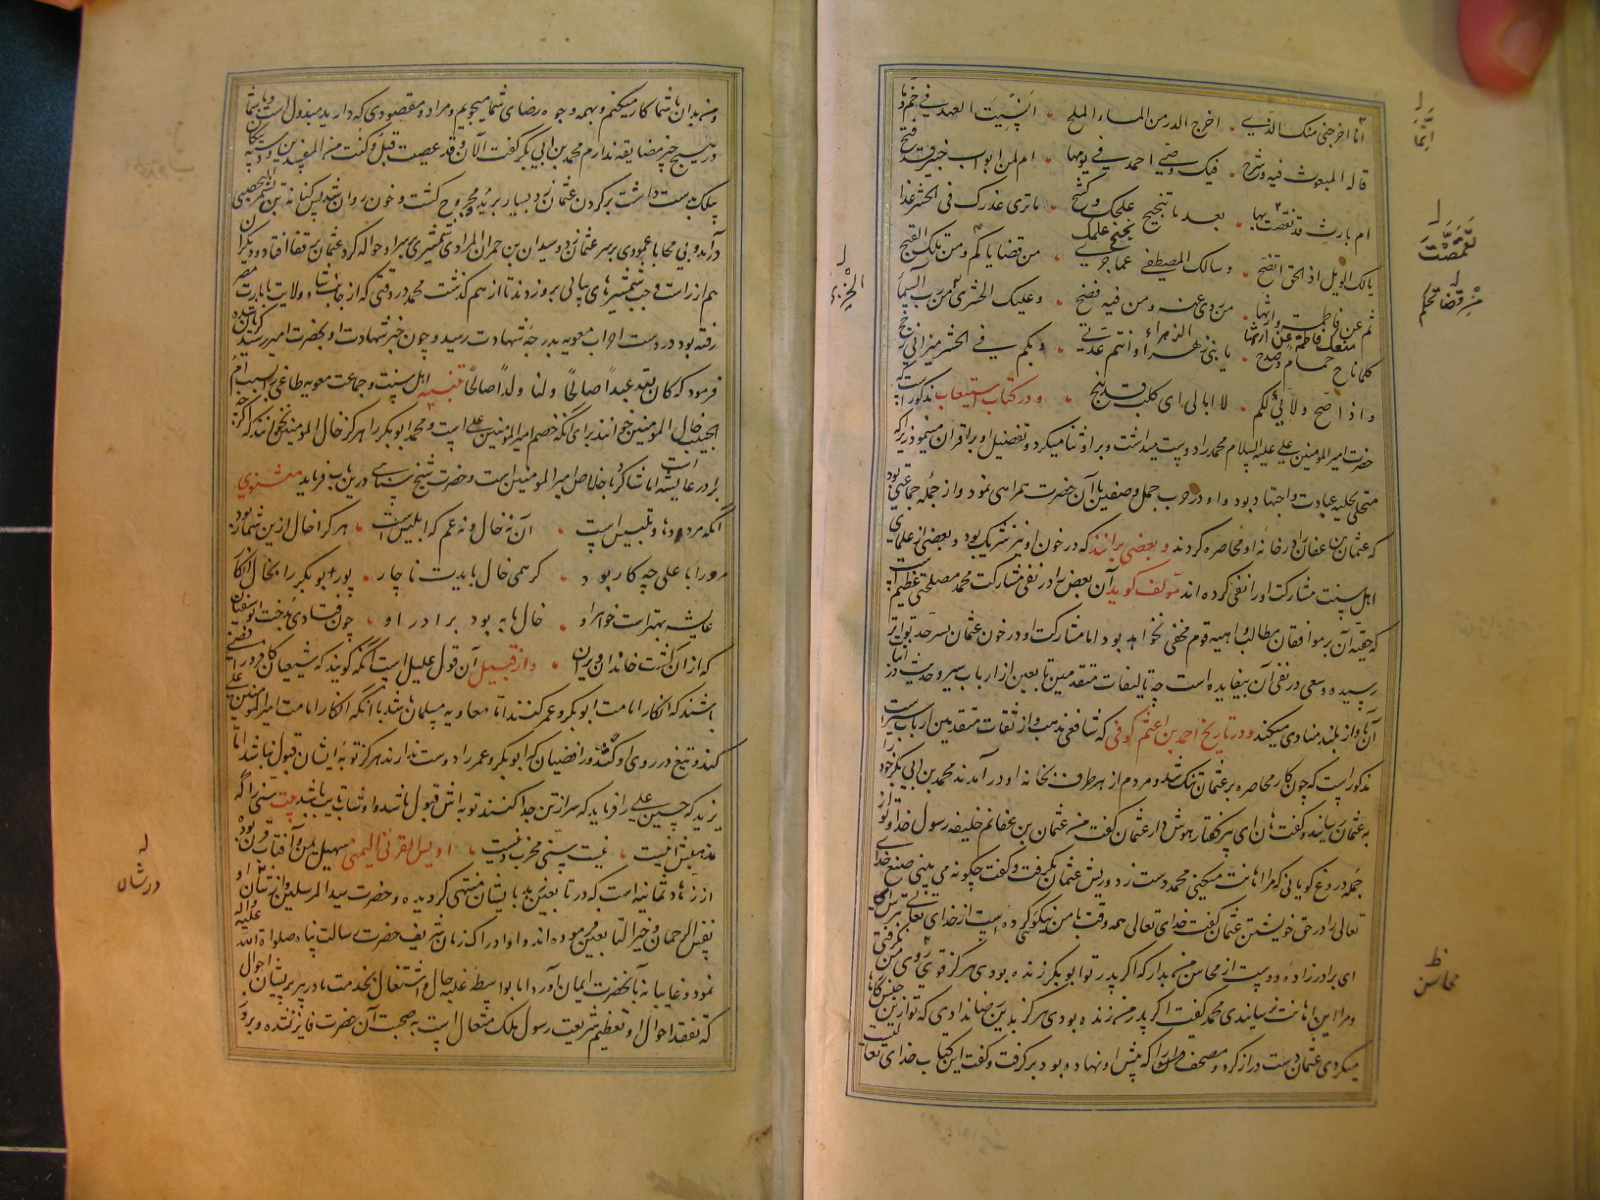 انا اخرجنی منک الذی • اخرج الدر من الماء الملح • انسیت العهد فی خم وما
قاله المبعوث فیه وشرح • فیک وصی احمد فی یومها • ام لمن ابواب خیبر قد فتح
ام بارث قد تقمصت بها • بعد ما تنجیح علجک وکشح • ما تری عذرک فی الحشر غدا
یا لک الویل اذ الحق اتضح • وسالک المصطفی عما جری • من قضایاکم ومن تلک القبح
ثم عن فاطمة وارثها • من روی عنه ومن فیه فضح • وعلیک الخزی من رب السما
کلما ناح حمام وصدح • یا بنی الزهراء انتم عدتی • وبکم فی الحشر میزانی رجح
واذا صح ولائی لکم • لا ابالی ای کلب قد نبح • ودر کتاب استیعاب مذکور است که
حضرت امیر المؤمنین علی علیه السلام محمد را دوست میداشت وبر او ثنا میکرد وتفضیل او بر اقران مینمود زیرا که
متحلی بحلیه عبادت واجتهاد بود واو در حرب جمل وصفین با آن حضرت همراهی نمود واز جمله جماعتی بود
که عثمان بن عفان را در خانه او محاصره کردند وبعضی برانند که در خون او نیز شریک بود وبعضی از علمای
اهل سنت مشارکت او را نفی کرده اند مؤلف کوید آن بعض را در نفی مشارکت محمد مصلحتی عظیم است
که حقیقه آن بر موافقان مطالب واهیه قوم مخفی نخواهد بود اما مشارکت او در خون عثمان بسر حد تواتر
رسیده وسعی در نفی آن بیفایده است چه تالیفات متقدمین تابعین از ارباب سیر وحدیث در اثبات
آن بآواز بلند منادی میکند ودر تاریخ احمد بن اعثم کوفی که شافعی مذهب واز ثقات متقدمین ارباب سیر است
مذکور است که چون کار محاصره بر عثمان تنک شد ومردم از هر طرف بخانه او در آمدند محمد بن ابی بکر خود را
به عثمان رسانید وگفت هان ای پیر کفتار هوش دار عثمان گفت من عثمان بن عفانم خلیفه رسول خدا وتو از
جمله دروغ گویانی که مرا اهانت میکنی محمد دست زد وریش عثمان بگرفت وگفت چگونه می بینی صنع خدای
تعالی را در حق خویشتن عثمان گفت خدای تعالی همه وقت با من نیکوئی کرده است از خدای تعالی بترس
ای برادر زاده ودست از محاسن من بدار که اگر پدر تو ابو بکر زنده بودی هرگز قوی روی من نگرفتی
ومرا این اهانت نرسانیدی محمد گفت اگر پدر من زنده بودی هرگز بدین رضا ندادی که تو ازین جنس کارها
میکردی عثمان دست دراز کرد ومصحفی را که پیش او نهاده بود بر گرفت وگفت این کتاب خدای تعالیست
انما
تقمصت
من قضایاکم
الخزی
محاسن
ومن بدان با شما کار میکنم وبهمه وجوه رضای شما میجویم ومراد ومقصودی که دارید مبذول است وبا شما
در هیچ چیز مضایقه ندارم محمد بن ابی بکر گفت آلان وقد عصیت قبل وکنت من المفسدین وبیکان
پلک بدست داشت بر گردن عثمان زد بسیار برید ومجروح کشت وخون روان شد پس کنانة بن بشر
در آمد وبی محابا عمودی بر سر عثمان زد وسیدان بن حمران المرادی شمشیری بر سر او حواله کرد عثمان بر قفا افتاد ودیگران
هم از راست وچپ شمشیرهای پیاپی برو زدند تا از هم گذشت محمد در وقتی که از جانب شاه ولایت بامارت مصر
رفته بود در دست احزاب معویه بدرجه شهادت رسید وچون خبر شهادت او بحضرت امیر رسید
فرمود که کان لله عبدا صالحا ولنا ولدا صالحا تنبیه اهل سنت وجماعت معویه طاغی را بسبب ام
الحبیبه خال المؤمنین خوانند برای آنکه خصم امیر المؤمنین علی است ومحمد ابو بکر را هرگز خال المؤمنین نخوانند که اگر چه
برادر عایشه است اما شاگرد با اخلاص امیر المؤمنین است وحضرت شیخ سنائی درین باب فرماید مثنوی
آنکه مردود وتلبیس است • آن نه خال ونه عم که ابلیس است • هر کرا خال ازین شمار بود
مرورا با علی چه کار بود • گر همی خال بایدت ناچار • پور بوبکر را بخال انکار
عایشه بهتر است خواهر او • خال ما به بود برادر او • چون فتادی بدخت بوسفیان
که ازان گشت خاندان ویران • وازین قبیل آن قول علیل است که گویند که شیعیان
باشند که انکار امامت ابو بکر وعمر کنند اما معاویه مسلمان باشد با آنکه انکار امامت امیر المؤمنین علی
کند وتیغ در روی او کشد ورافضیان که ابو بکر وعمر را دوست ندارند هرگز توبه ایشان قبول نباشد اما
یزید که حسین علی را فرماید که سر از تن جدا کنند توبه اش قبول باشد واو شاب تایب باشد بیت سنی را که
مذهبش اینست • نیست سنی مخرب دینست • اویس القرنی الیمنی سهیل یمن وآفتاب قرن بوده
از زهاد ثمانیه است که در تابعین زهد بایشان منتهی گردیده وحضرت سید المرسلین از شان او
بنفس الرحمن وخیر التابعین فرموده اند واو ادراک زمان شریف حضرت رسالت پناه صلواة الله علیه واله
نمود وغایبانه بآنحضرت ایمان آورد اما بواسطه غلبه حال واشتغال بخدمت مادر پیر پریشان احوال
که تفقد احوال او وتعظیم شریعت رسول ملک متعال است بصحبت آن حضرت فایز نشده وبروز
درشان